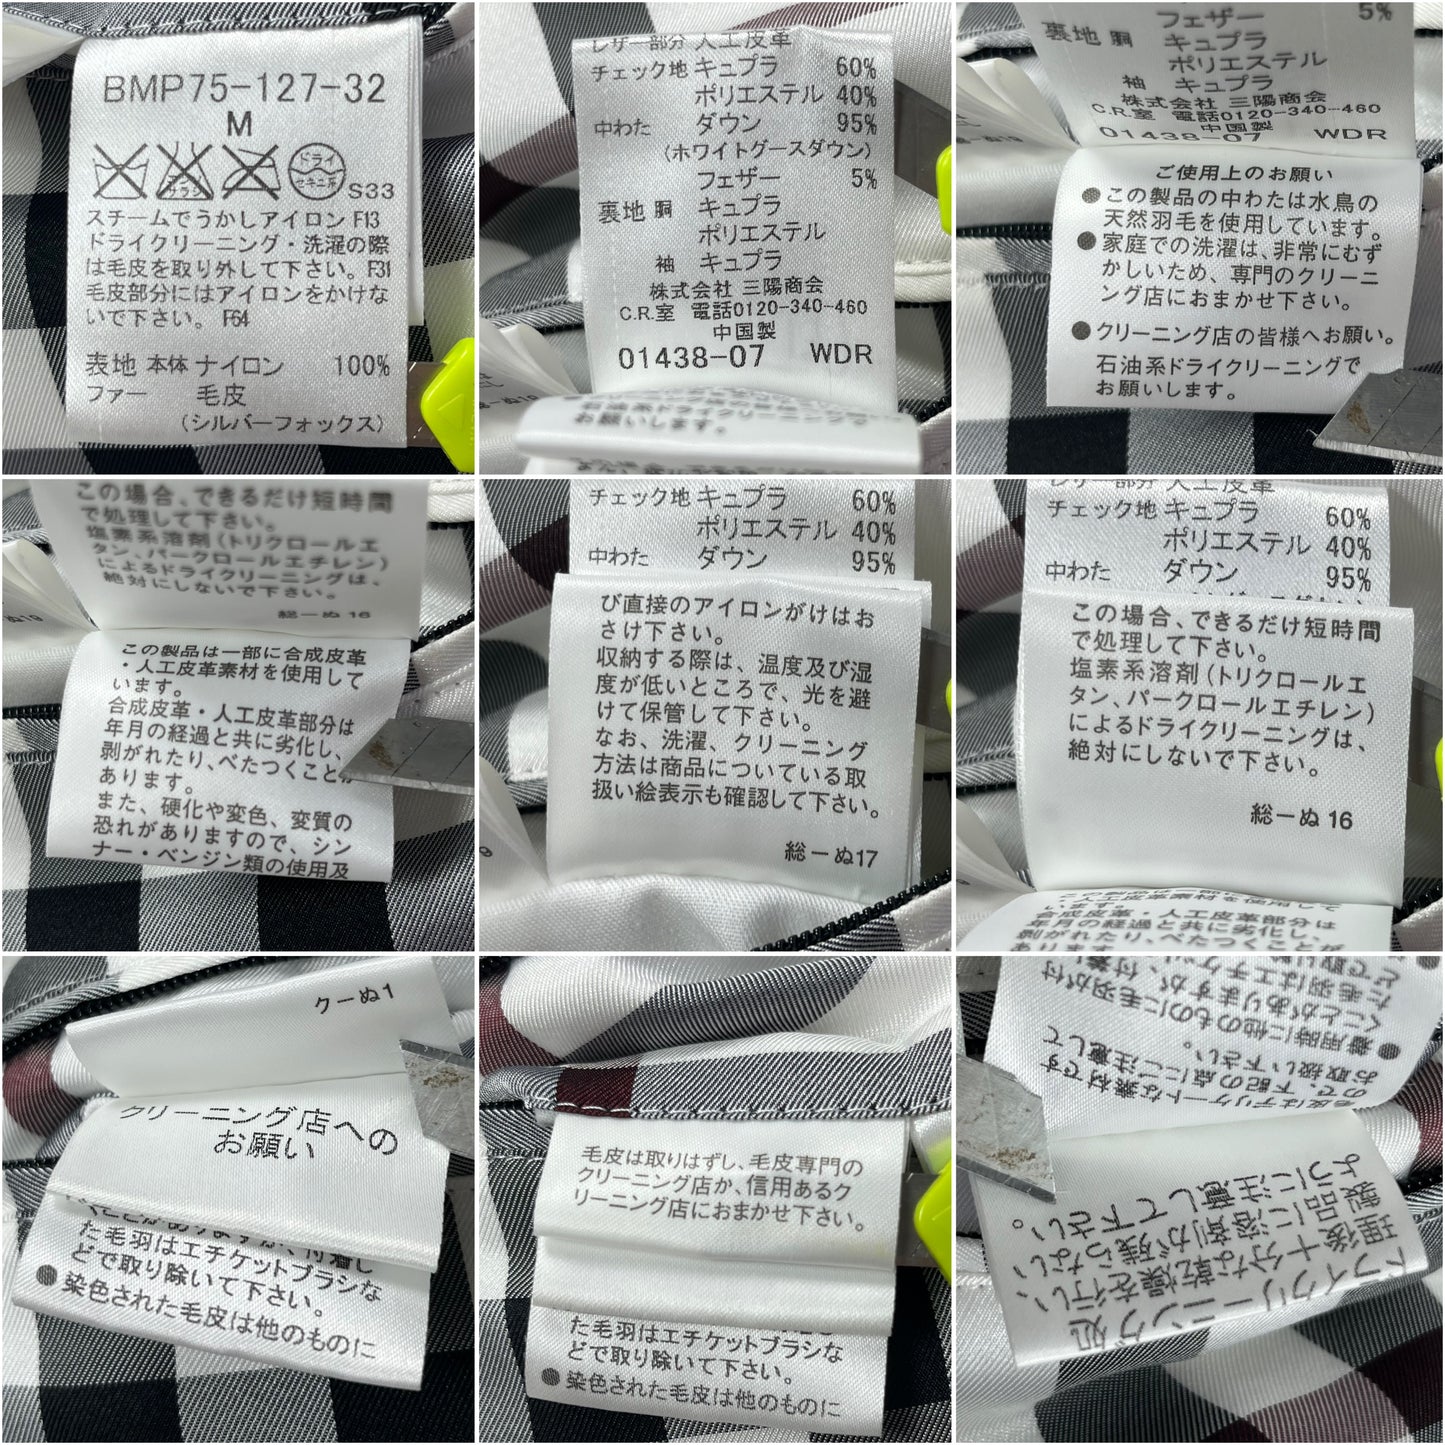 BMP75-127-32
M
ドライ
セキユ系
S33
スチームでうかしアイロン F13
ドライクリーニング・洗濯の際
は毛皮を取り外して下さい。F31
毛皮部分にはアイロンをかけな
いで下さい。 F64
表地 本体 ナイロン 100%
ファー 毛皮
(シルバーフォックス)
レザー部分 人工皮革
チェック地 キュプラ 60%
ポリエステル 40%
中わた ダウン 95%
(ホワイトグースダウン)
フェザー 5%
裏地 胴 キュプラ
ポリエステル
袖 キュプラ
株式会社 三陽商会
C.R.室 電話0120-340-460
中国製
01438-07 WDR
石油系ドライクリーニングで
お願いします。
フェザー 5%
裏地 胴 キュプラ
ポリエステル
袖 キュプラ
株式会社 三陽商会
C.R.室 電話0120-340-460
中国製
01438-07 WDR
ご使用上のお願い
●この製品の中わたは水鳥の
天然羽毛を使用しています。
●家庭での洗濯は、非常にむず
かしいため、専門のクリーニ
ング店におまかせ下さい。
●クリーニング店の皆様へお願い。
石油系ドライクリーニングで
お願いします。
この場合、できるだけ短時間
で処理して下さい。
塩素系溶剤(トリクロールエ
タン、パークロールエチレン)
によるドライクリーニングは、
絶対にしないで下さい。
総ーぬ 16
この製品は一部に合成皮革
・人工皮革素材を使用して
います。
合成皮革・人工皮革部分は
年月の経過と共に劣化し、
剥がれたり、べたつくことが
あります。
また、硬化や変色、変質の
恐れがありますので、シン
ナー・ベンジン類の使用及
チェック地 キュプラ 60%
ポリエステル 40%
中わた ダウン 95%
び直接のアイロンがけはお
さけ下さい。
収納する際は、温度及び湿
度が低いところで、光を避
けて保管して下さい。
なお、洗濯、クリーニング
方法は商品についている取
扱い絵表示も確認して下さい。
総ーぬ17
レザー部分 人工皮革
チェック地 キュプラ 60%
ポリエステル 40%
中わた ダウン 95%
この場合、できるだけ短時間
で処理して下さい。
塩素系溶剤(トリクロールエ
タン、パークロールエチレン)
によるドライクリーニングは、
絶対にしないで下さい。
総ーぬ 16
・人工皮革素材を使用して
合成皮革・人工皮革部分は
年月の経過と共に劣化し、
剥がれたり、べたつくことが
あります。
クーぬ1
クリーニング店への
お願い
た毛羽はエチケットブラシな
どで取り除いて下さい。
●染色された毛皮は他のものに
毛皮は取りはずし、毛皮専門の
クリーニング店か、信用あるク
リーニング店におまかせ下さい。
た毛羽はエチケットブラシな
どで取り除いて下さい。
●染色された毛皮は他のものに
毛皮はデリケートな素材です
ので、下記の点にご注意して
お取扱い下さい。
●着用時に他のものに毛羽が付
くことがありますが、付着し
た毛羽はエチケット
ドライクリーニング処
理後十分な乾燥を行い、
製品に溶剤が残らない
ように注意して下さい。